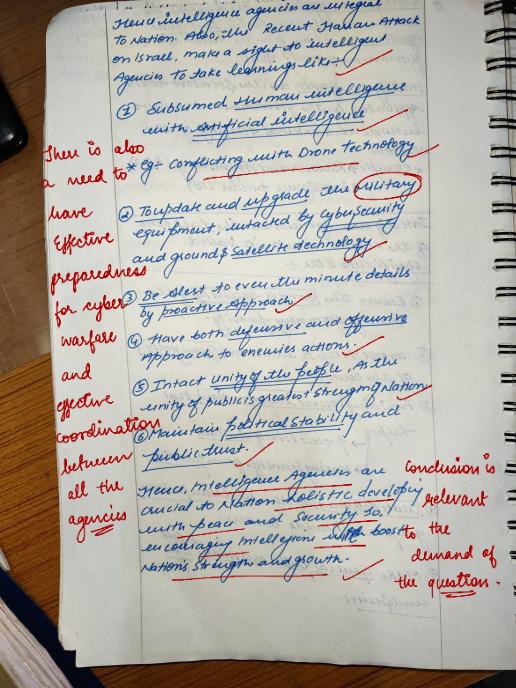 Hence intelligence agencies are integral
To Nation. Also, the Recent Hamas Attack
on Israel, make a sight to intelligent
Agencies to take learnings like:-
① Subsumed Human intelligence
with Artificial intelligence
* eg:- Conflicting with Drone Technology
② To update and upgrade the Military
equipment, intacted by Cybersecurity
and ground & Satellite technology
③ Be Alert to even the minute details
by proactive Approach
④ Have both defensive and offensive
Approach to enemies actions.
⑤ Intact unity of the people, As the
unity of public is greatest strength of Nation
⑥ Maintain political stability and
public trust.
Hence, Intelligence Agencies are
crucial to Nation holistic developing
with peace and Security so,
encouraging Intelligence will boost
Nation's Strength and growth.
There is also
a need to
have
Effective
preparedness
for cyber
warfare
and
effective
coordination
between
all the
agencies
Conclusion is
relevant
to the
demand of
the question.